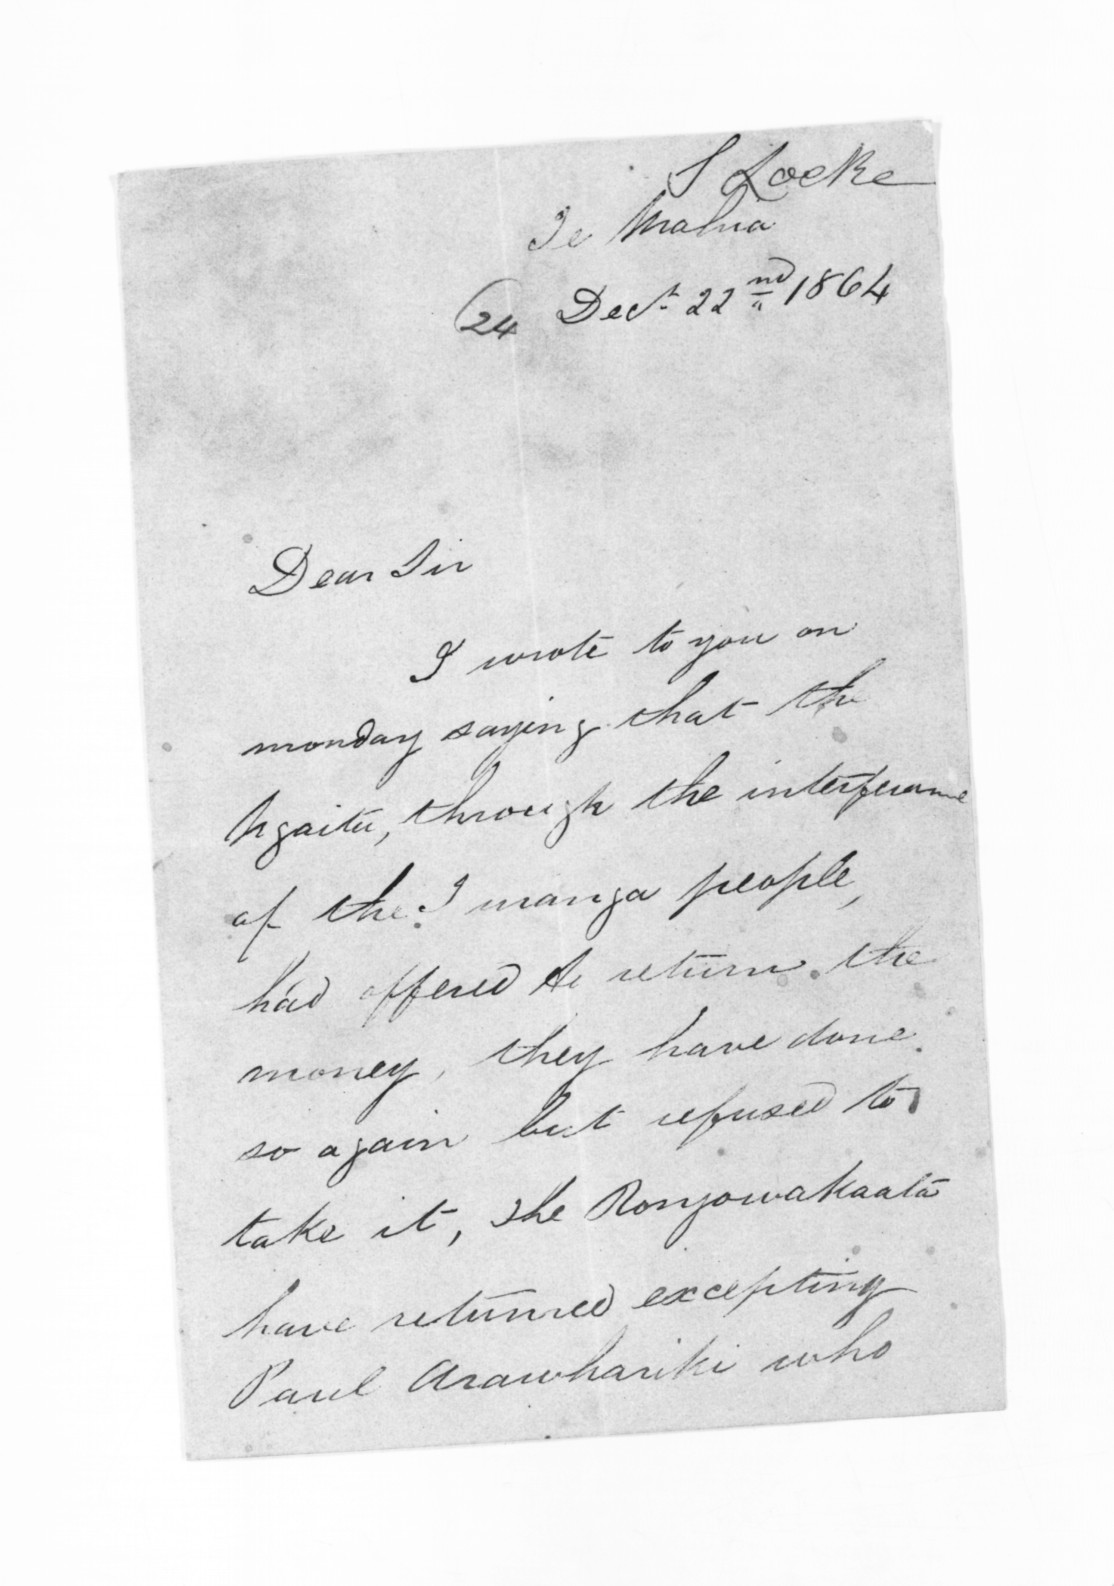 S Locke
Te Mahia
24 Decr 22nd 1864
Dear Sir
I wrote to you on
monday saying that the
Ngaitu, through the interferance
of the I manga people,
had offered to return the
money, they have done
so again but refused to
take it, The Rongowakaata
have returned excepting
Paul Arawhariki who